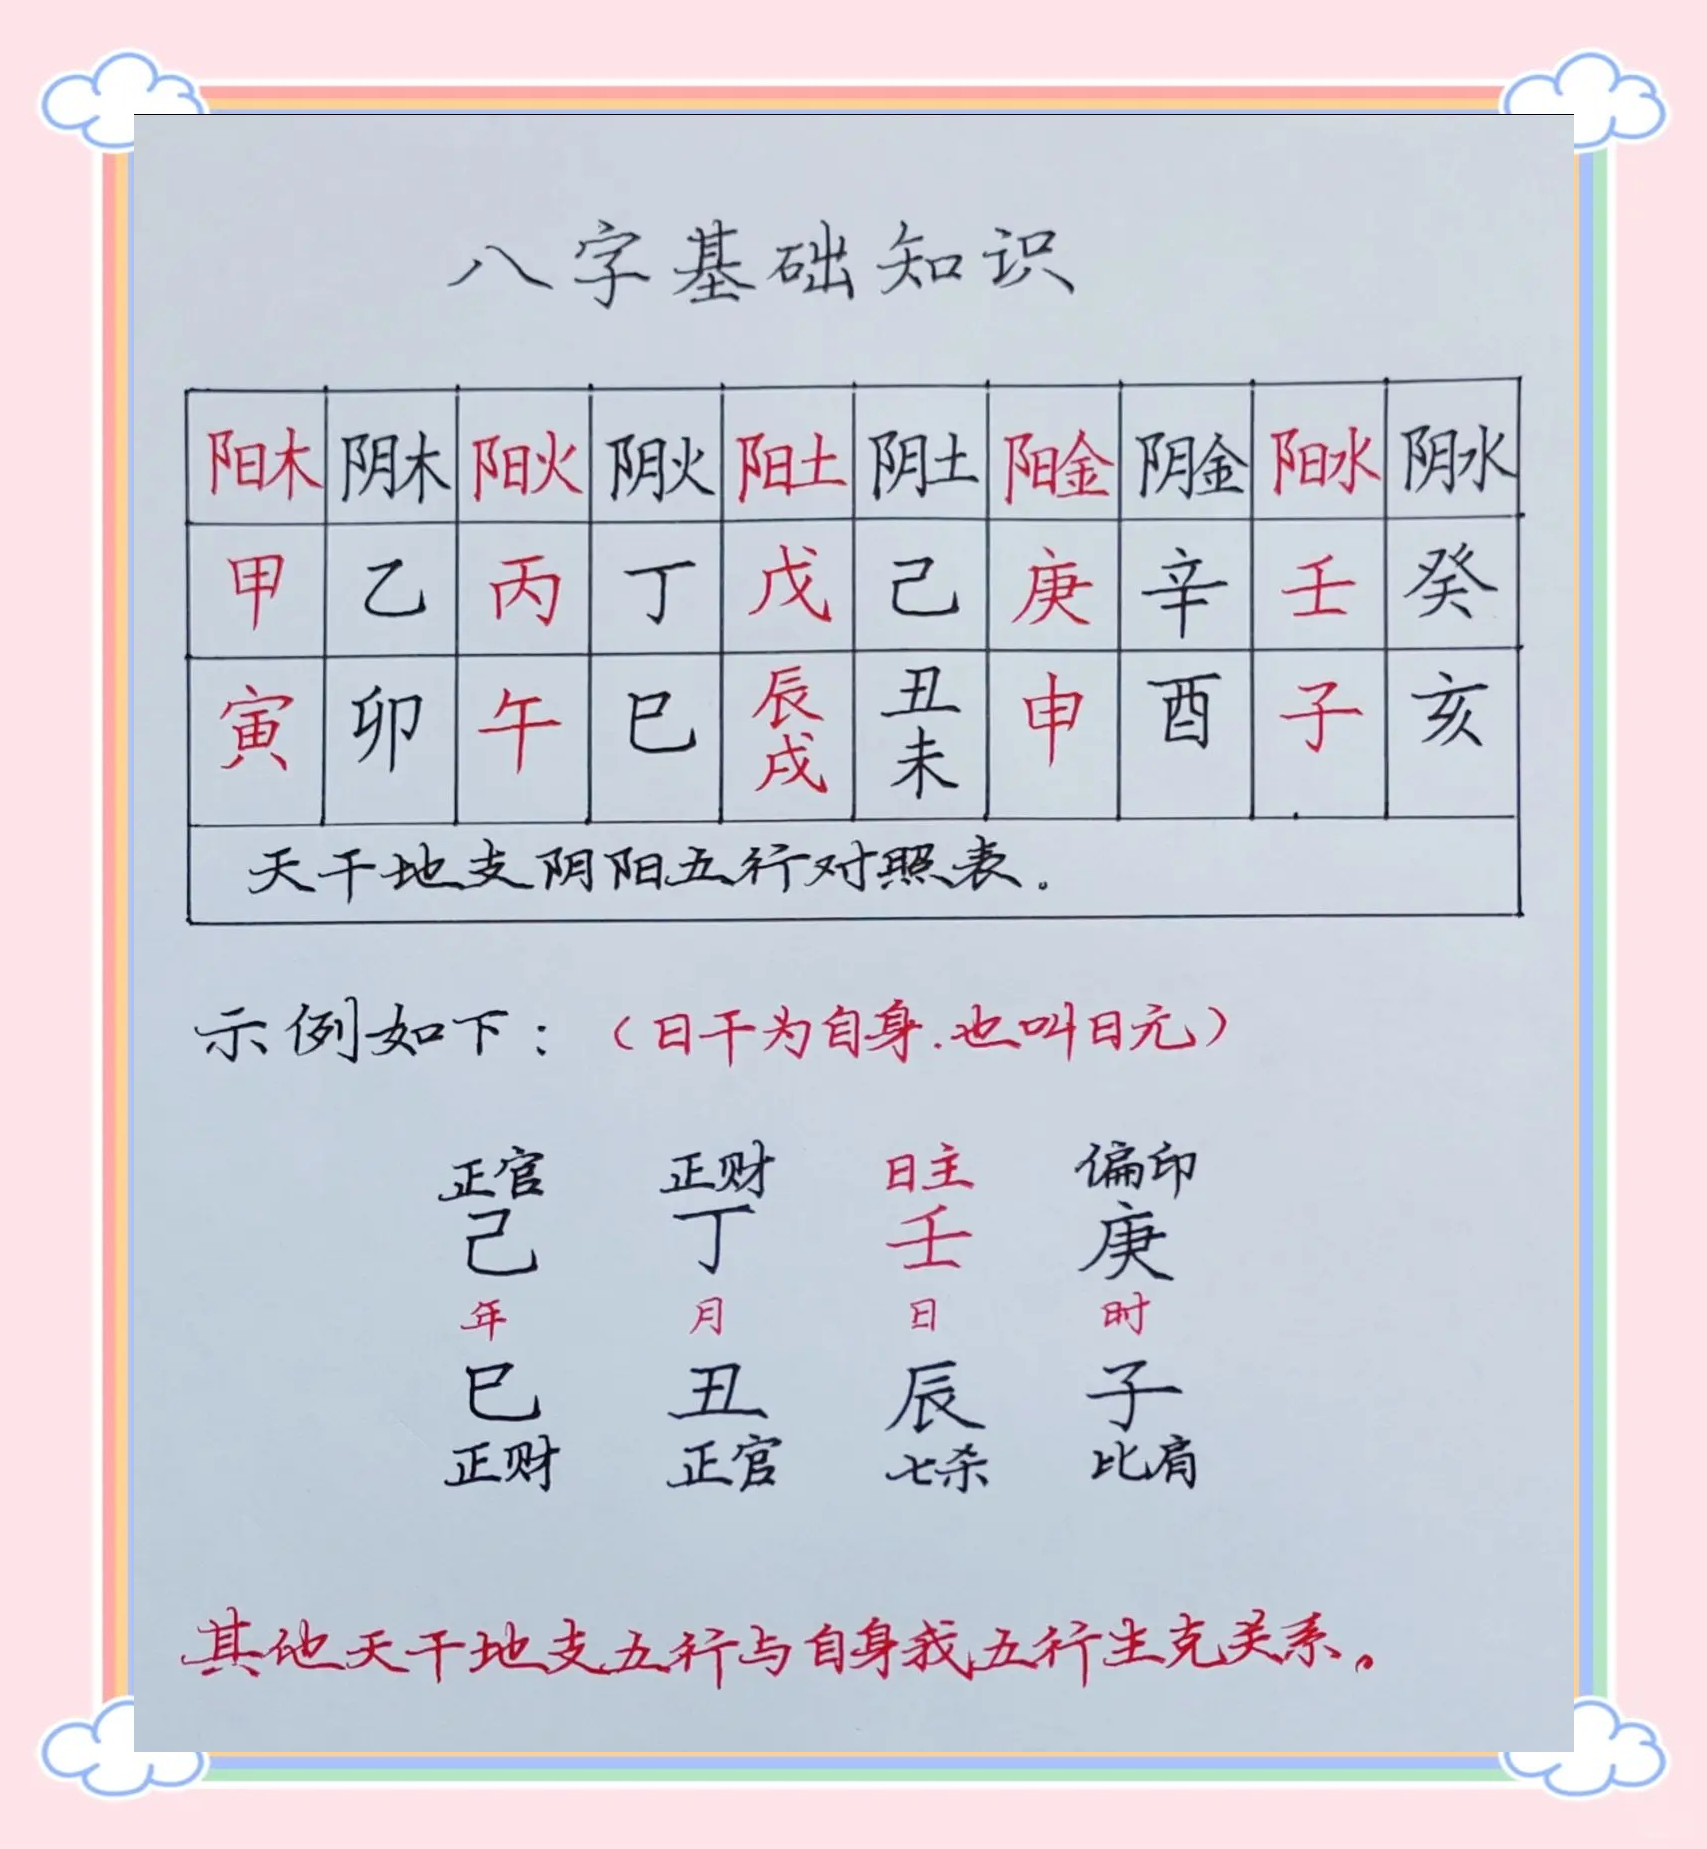 八字基础知识
阳木 阴木 阳火 阴火 阳土 阴土 阳金 阴金 阳水 阴水
甲 乙 丙 丁 戊 己 庚 辛 壬 癸
寅 卯 午 巳 辰戌 丑未 申 酉 子 亥
天干地支阴阳五行对照表。
示例如下：（日干为自身.也叫日元）
正官 正财 日主 偏印
己 丁 壬 庚
年 月 日 时
巳 丑 辰 子
正财 正官 七杀 比肩
其他天干地支五行与自身我五行生克关系。